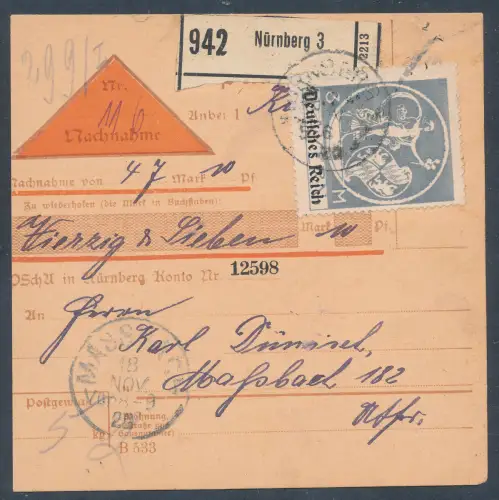 942 Nürnberg 3 2213
Nr.
116
Nachnahme
Anbei 1
Deutsches Reich
Nachnahme von 47 Mark 10 Pf
Zu wiederholen (die Mark in Buchstaben):
Vierzig & Sieben Mark 10 Pf.
OSchA in Nürnberg Konto Nr. 12598
An Herrn
Karl
Maßbach 182
18
NOV
8-9
Postgew
kg
B 533